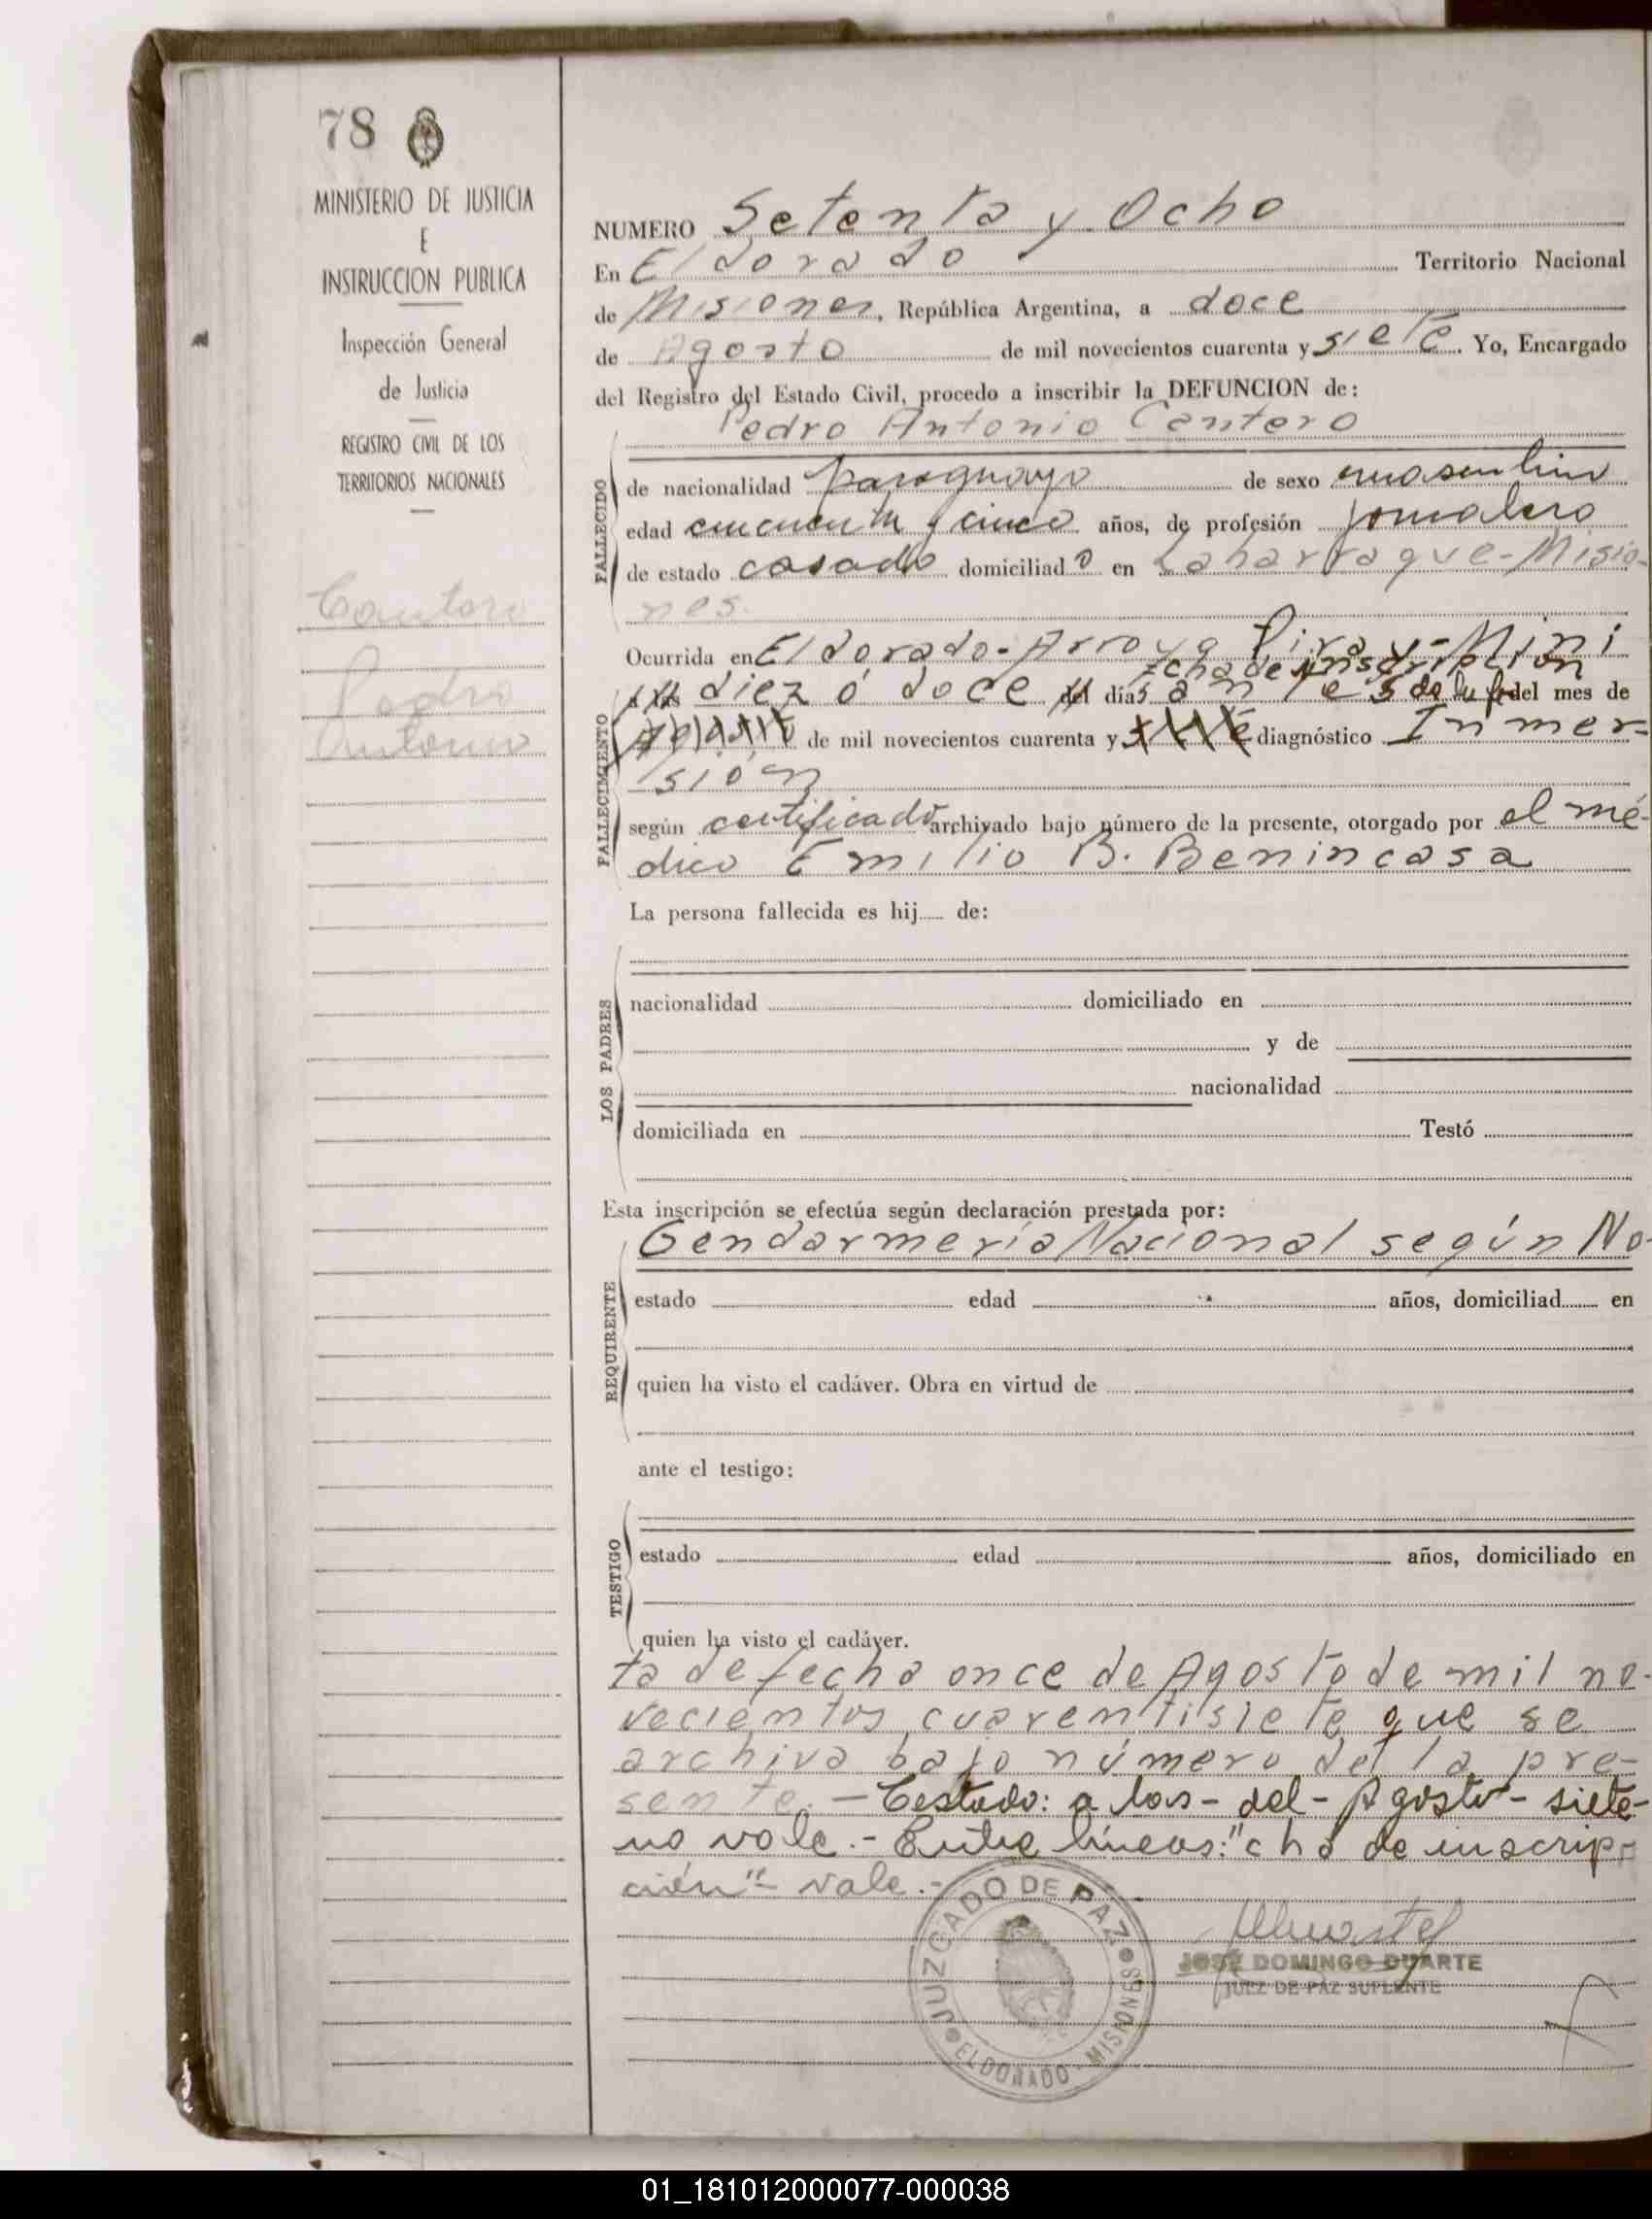 78
MINISTERIO DE JUSTICIA
E
INSTRUCCION PUBLICA
Inspección General
de Justicia
REGISTRO CIVIL DE LOS
TERRITORIOS NACIONALES
Cantero
Pedro
Antonio
NUMERO Setenta y Ocho
En Eldorado Territorio Nacional
de Misiones, República Argentina, a doce
de Agosto de mil novecientos cuarenta y siete. Yo, Encargado
del Registro del Estado Civil, procedo a inscribir la DEFUNCION de:
Pedro Antonio Cantero
FALLECIDO
de nacionalidad paraguayo de sexo masculino
edad cincuenta y cinco años, de profesión jornalero
de estado casado domiciliado en Laharrague-Misio-
nes.
FALLECIMIENTO
Ocurrida en Eldorado-Arroyo Piray-Mini
cha de inscripción
a las diez ó doce del días antes de la fe del mes de
Agosto de mil novecientos cuarenta y siete diagnóstico Inmer-
sión
según certificado archivado bajo número de la presente, otorgado por el mé-
dico Emilio B. Benincasa
La persona fallecida es hij..... de:
LOS PADRES
nacionalidad domiciliado en
y de
nacionalidad
domiciliada en Testó
Esta inscripción se efectúa según declaración prestada por:
REQUIRENTE
Gendarmería Nacional según No-
estado edad años, domiciliad....... en
quien ha visto el cadáver. Obra en virtud de
ante el testigo:
TESTIGO
estado edad años, domiciliado en
quien ha visto el cadáver.
ta de fecha once de Agosto de mil no-
vecientos cuarentisiete que se
archiva bajo número de la pre-
sente. - Testado: a las - del - Agosto - siete-
no vale.- Entre líneas:"cha de inscrip-
ción" vale.-
JUZGADO DE PAZ
ELDORADO - MISIONES
JOSÉ DOMINGO DUARTE
JUEZ DE PAZ SUPLENTE
01_181012000077-000038